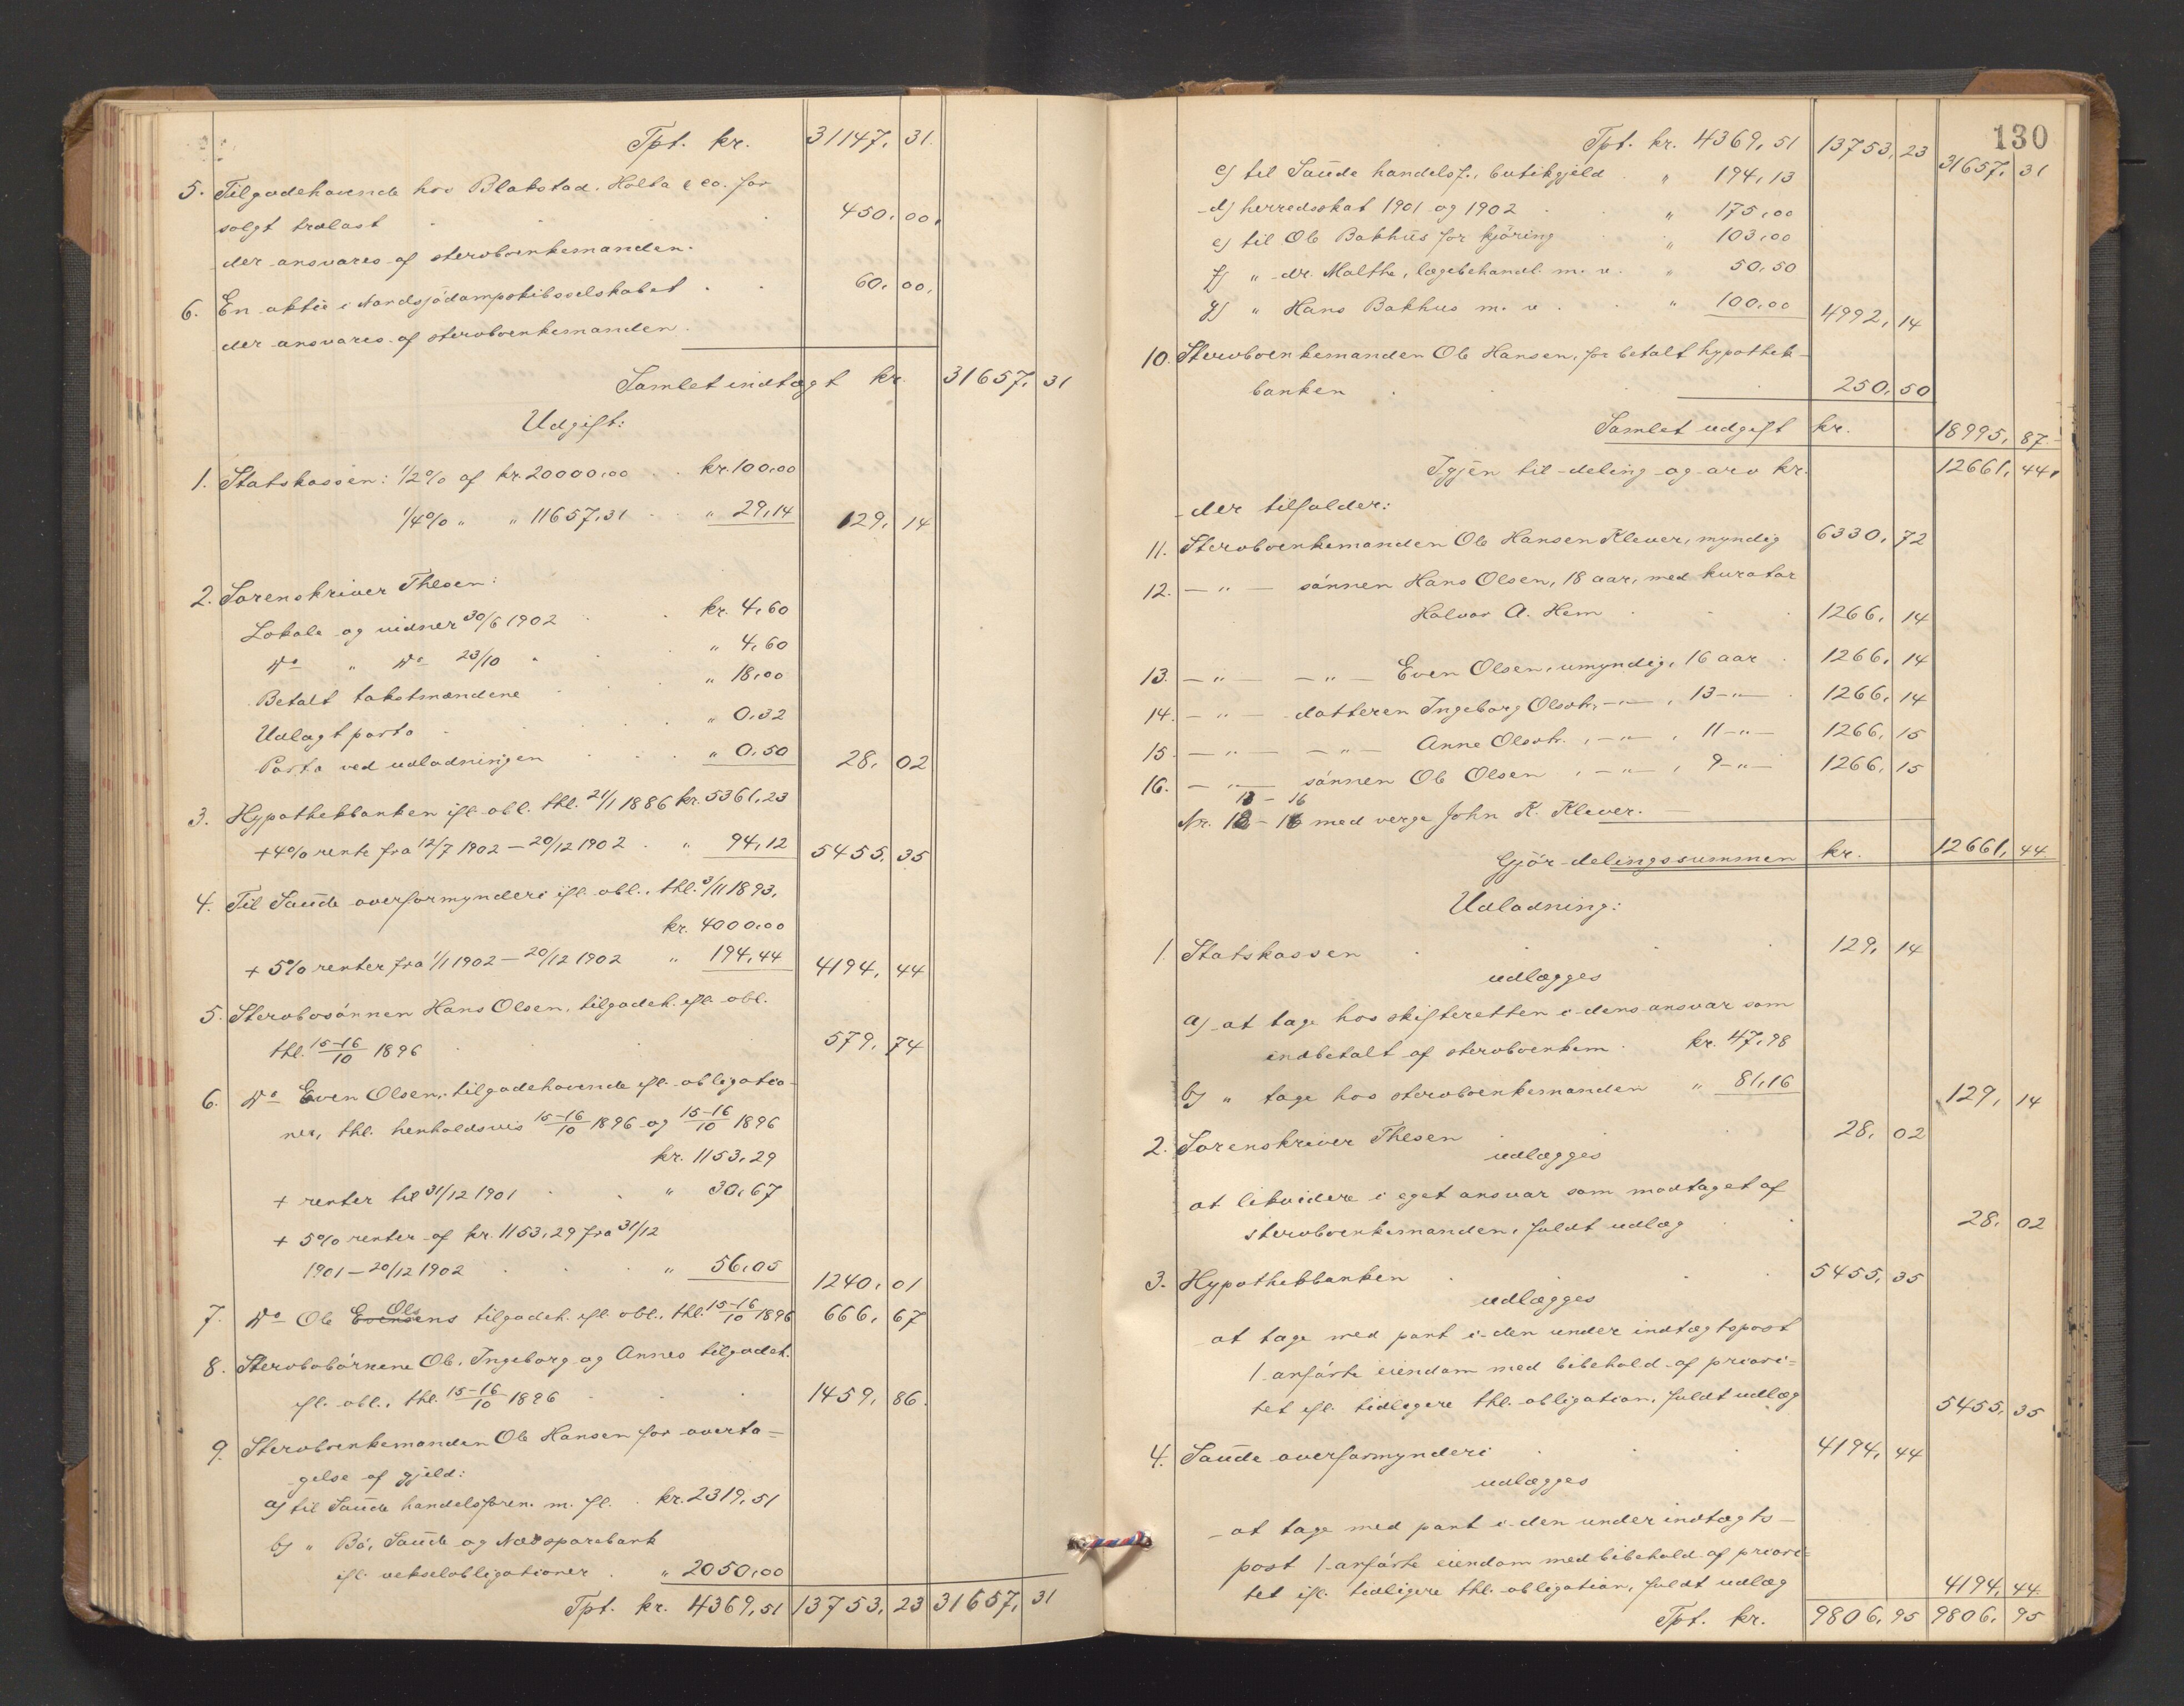 Tpt. kr. 31147, 31.
5. Tilgodehavende hos Blakstad, Holta & co. for
solgt trælast 450, 00,
der ansvares af stervboenkemanden.
6. En aktie i Nordsjødampskibsselskabet 60, 00,
der ansvares af stervboenkemanden.
Samlet indtægt kr. 31657, 31
Udgift:
1. Statskassen: 1/2% af kr. 20000,00 kr. 100,00
1/4% " " 11657,31 " 29,14 129, 14
2. Sorenskriver Thesen:
Lokale og vidner 30/6 1902 kr. 4,60
Do " Do 23/10 " " 4,60
Betalt takstmændene " 18,00
Udlagt porto " 0,32
Porto ved udlodningen " 0,50 28, 02
3. Hypothekbanken ifl. obl. thl. 21/1 1886 kr. 5361,23
+ 4% rente fra 12/7 1902 – 20/12 1902 " 94,12 5455, 35
4. Til Saude overformynderi ifl. obl., thl. 3/11 1893,
kr. 4000,00
+ 5% renter fra 1/1 1902 – 20/12 1902 " 194,44 4194, 44
5. Stervbosønnen Hans Olsen, tilgodeh. ifl. obl.
thl. 15-16/10 1896 579, 74
6. Do Even Olsen, tilgodehavende ifl. obligatio-
ner, thl. henholdsvis 15-16/10 1896 og 15-16/10 1896
kr. 1153,29
+ renter til 31/12 1901 " 30,67
+ 5% renter af kr. 1153,29 fra 31/12
1901 – 20/12 1902 " 56,05 1240, 01
7. Do Ole Evensens Ols tilgodeh. ifl. obl., thl. 15-16/10 1896 666, 67
8. Stervbobørnene Ole, Ingeborg og Annes tilgodeh.
ifl. obl., thl. 15-16/10 1896 1459, 86.
9. Stervboenkemanden Ole Hansen for overta=
gelse af gjeld:
a) til Saude handelsforen. m. fl. kr. 2319,51
b) " Bø, Saude og Nes sparebank
ifl. vekselobligationer " 2050,00
Tpt. kr. 4369,51 13753, 23 31657, 31
130
Tpt. kr. 4369,51 13753, 23 31657, 31
c) til Saude handelsf., butikgjeld " 194,13
d) herredsskat 1901 og 1902 " 175,00
e) til Ole Bakhus for kjøring " 103,00
f) " dr. Malthe, lægebehandl. m. v. " 50,50
g) " Hans Bakhus m. v. " 100,00 4992, 14
10. Stervboenkemanden Ole Hansen, for betalt hypothek-
banken 250, 50
Samlet udgift kr. 18995, 87.
Igjen til deling og arv kr. 12661, 44,
der tilfalder:
11. Stervboenkemanden Ole Hansen Klever, myndig 6330, 72
12. — " — sønnen Hans Olsen, 18 aar, med kurator
Halvor A. Hem 1266, 14
13. — " — — " — Even Olsen, umyndig, 16 aar 1266, 14
14. — " — datteren Ingeborg Olsdtr., — " — , 13 — " — 1266, 14
15. — " — — " — Anne Olsdtr. , — " — , 11 — " — 1266, 15
16. — " — sønnen Ole Olsen , — " — , 9 — " — 1266, 15
13 – 16
Nr. 12 – 16 med verge John K. Klever.
Gjør delingssummen kr. 12661, 44
Udlodning:
1. Statskassen 129, 14
udlægges
a) at tage hos skifteretten i dens ansvar som
indbetalt af stervboenkem. kr. 47,98
b) " tage hos stervboenkemanden " 81,16 129, 14
2. Sorenskriver Thesen 28, 02
udlægges
at likvidere i eget ansvar som modtaget af
stervboenkemanden, fuldt udlæg 28, 02
3. Hypothekbanken 5455, 35
udlægges
at tage med pant i den under indtægtspost
1 anførte eiendom med bibehold af priori=
tet ifl. tidligere thl. obligation, fuldt udlæg 5455, 35
4. Saude overformynderi 4194, 44
udlægges
at tage med pant i den under indtægts-
post 1 anførte eiendom med bibehold af priori=
tet ifl. tidligere thl. obligation, fuldt udlæg 4194, 44
Tpt. kr. 9806, 95 9806, 95